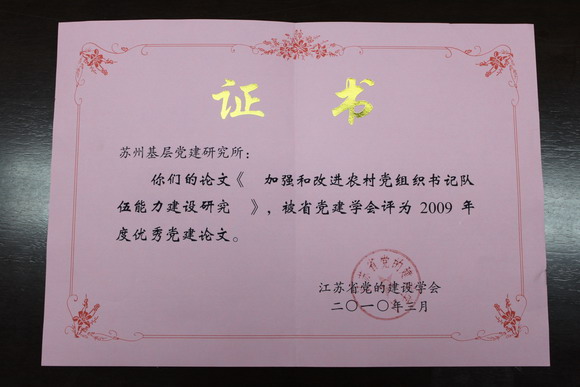 证 书
苏州基层党建研究所：
你们的论文《 加强和改进农村党组织书记队
伍能力建设研究 》，被省党建学会评为 2009 年
度优秀党建论文。
江苏省党的建设学会
二〇一〇年三月